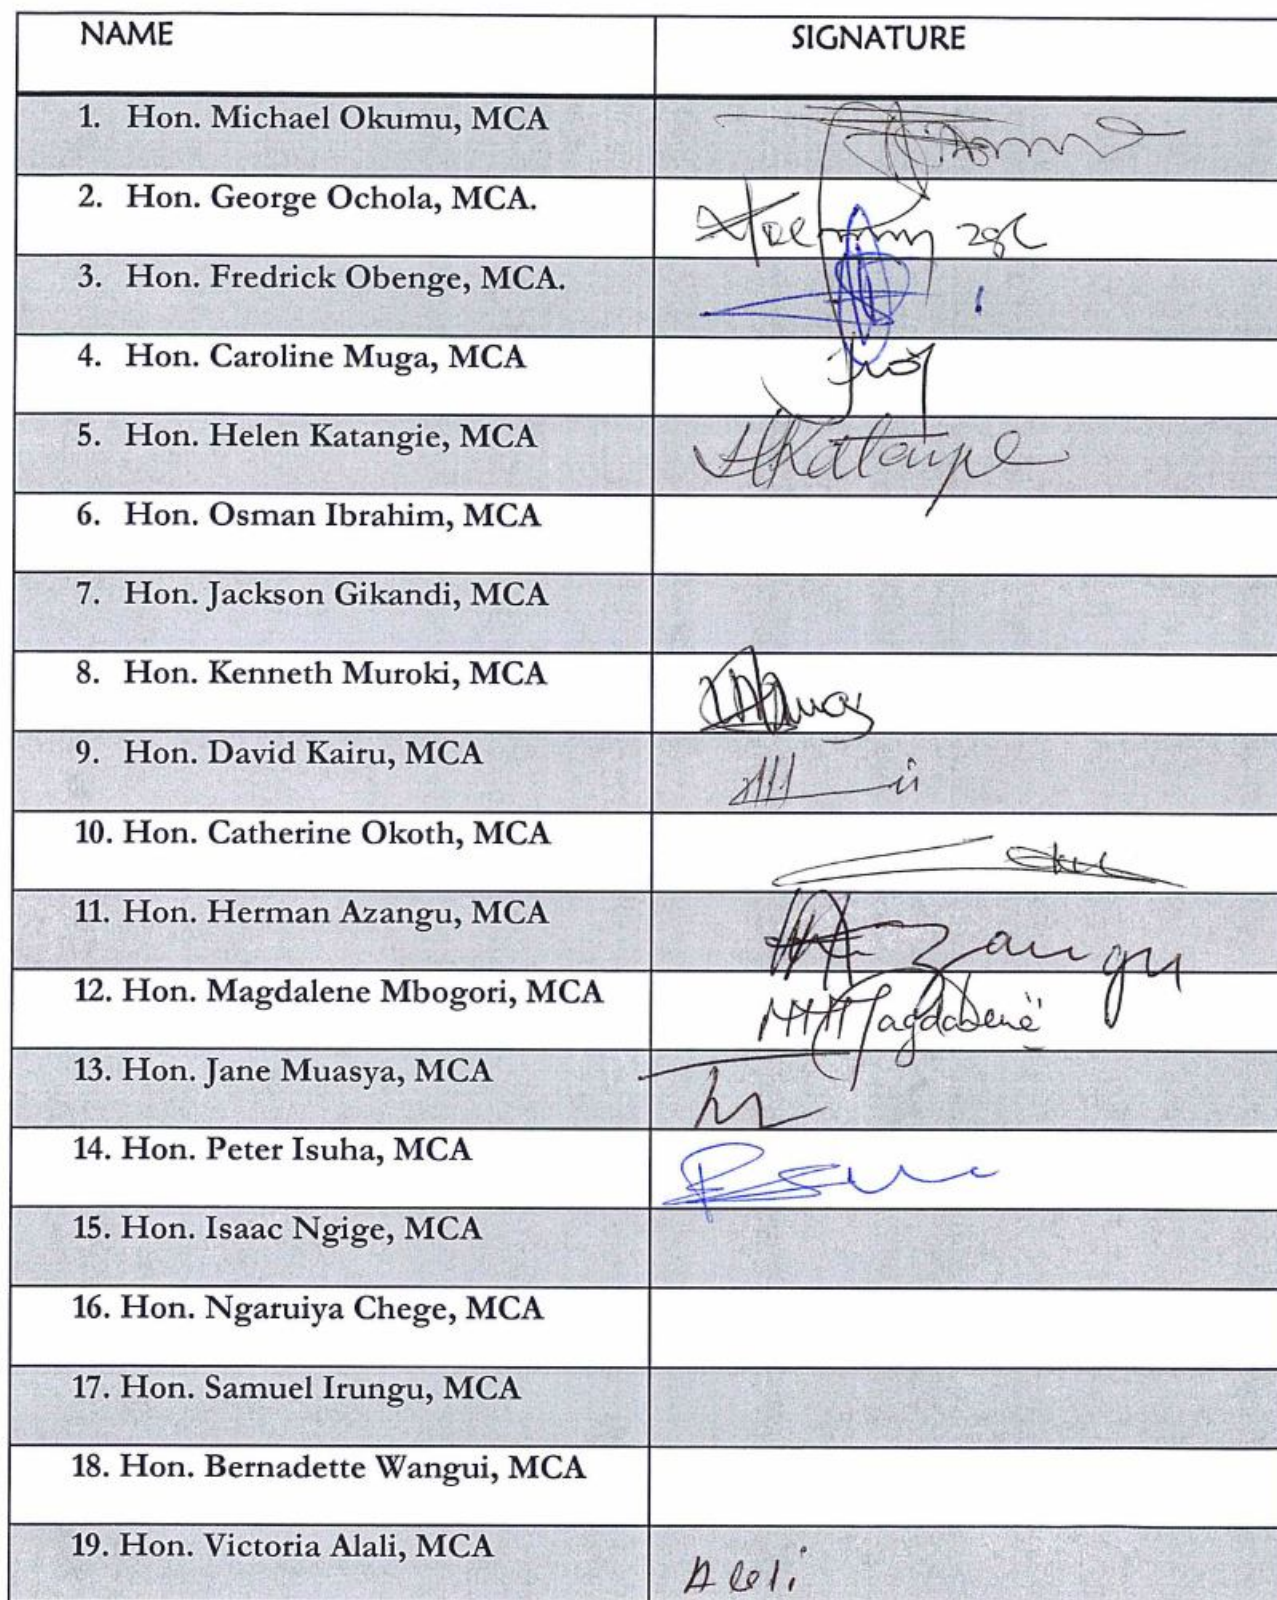 NAME SIGNATURE
1. Hon. Michael Okumu, MCA
2. Hon. George Ochola, MCA.
3. Hon. Fredrick Obenge, MCA.
4. Hon. Caroline Muga, MCA
5. Hon. Helen Katangie, MCA
6. Hon. Osman Ibrahim, MCA
7. Hon. Jackson Gikandi, MCA
8. Hon. Kenneth Muroki, MCA
9. Hon. David Kairu, MCA
10. Hon. Catherine Okoth, MCA
11. Hon. Herman Azangu, MCA
12. Hon. Magdalene Mbogori, MCA
13. Hon. Jane Muasya, MCA
14. Hon. Peter Isuha, MCA
15. Hon. Isaac Ngige, MCA
16. Hon. Ngaruiya Chege, MCA
17. Hon. Samuel Irungu, MCA
18. Hon. Bernadette Wangui, MCA
19. Hon. Victoria Alali, MCA